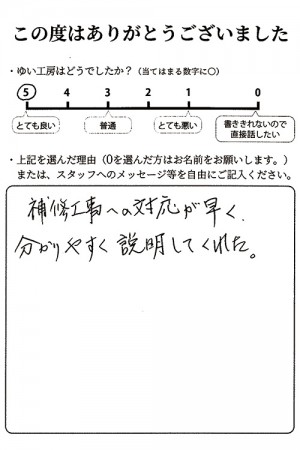 この度はありがとうございました
・ゆい工房はどうでしたか？（当てはまる数字に〇）
5 4 3 2 1 0
とても良い 普通 とても悪い 書ききれないので直接話したい
・上記を選んだ理由（0を選んだ方はお名前をお願いします。）
または、スタッフへのメッセージ等を自由にご記入ください。
補修工事への対応が早く、
分かりやすく説明してくれた。